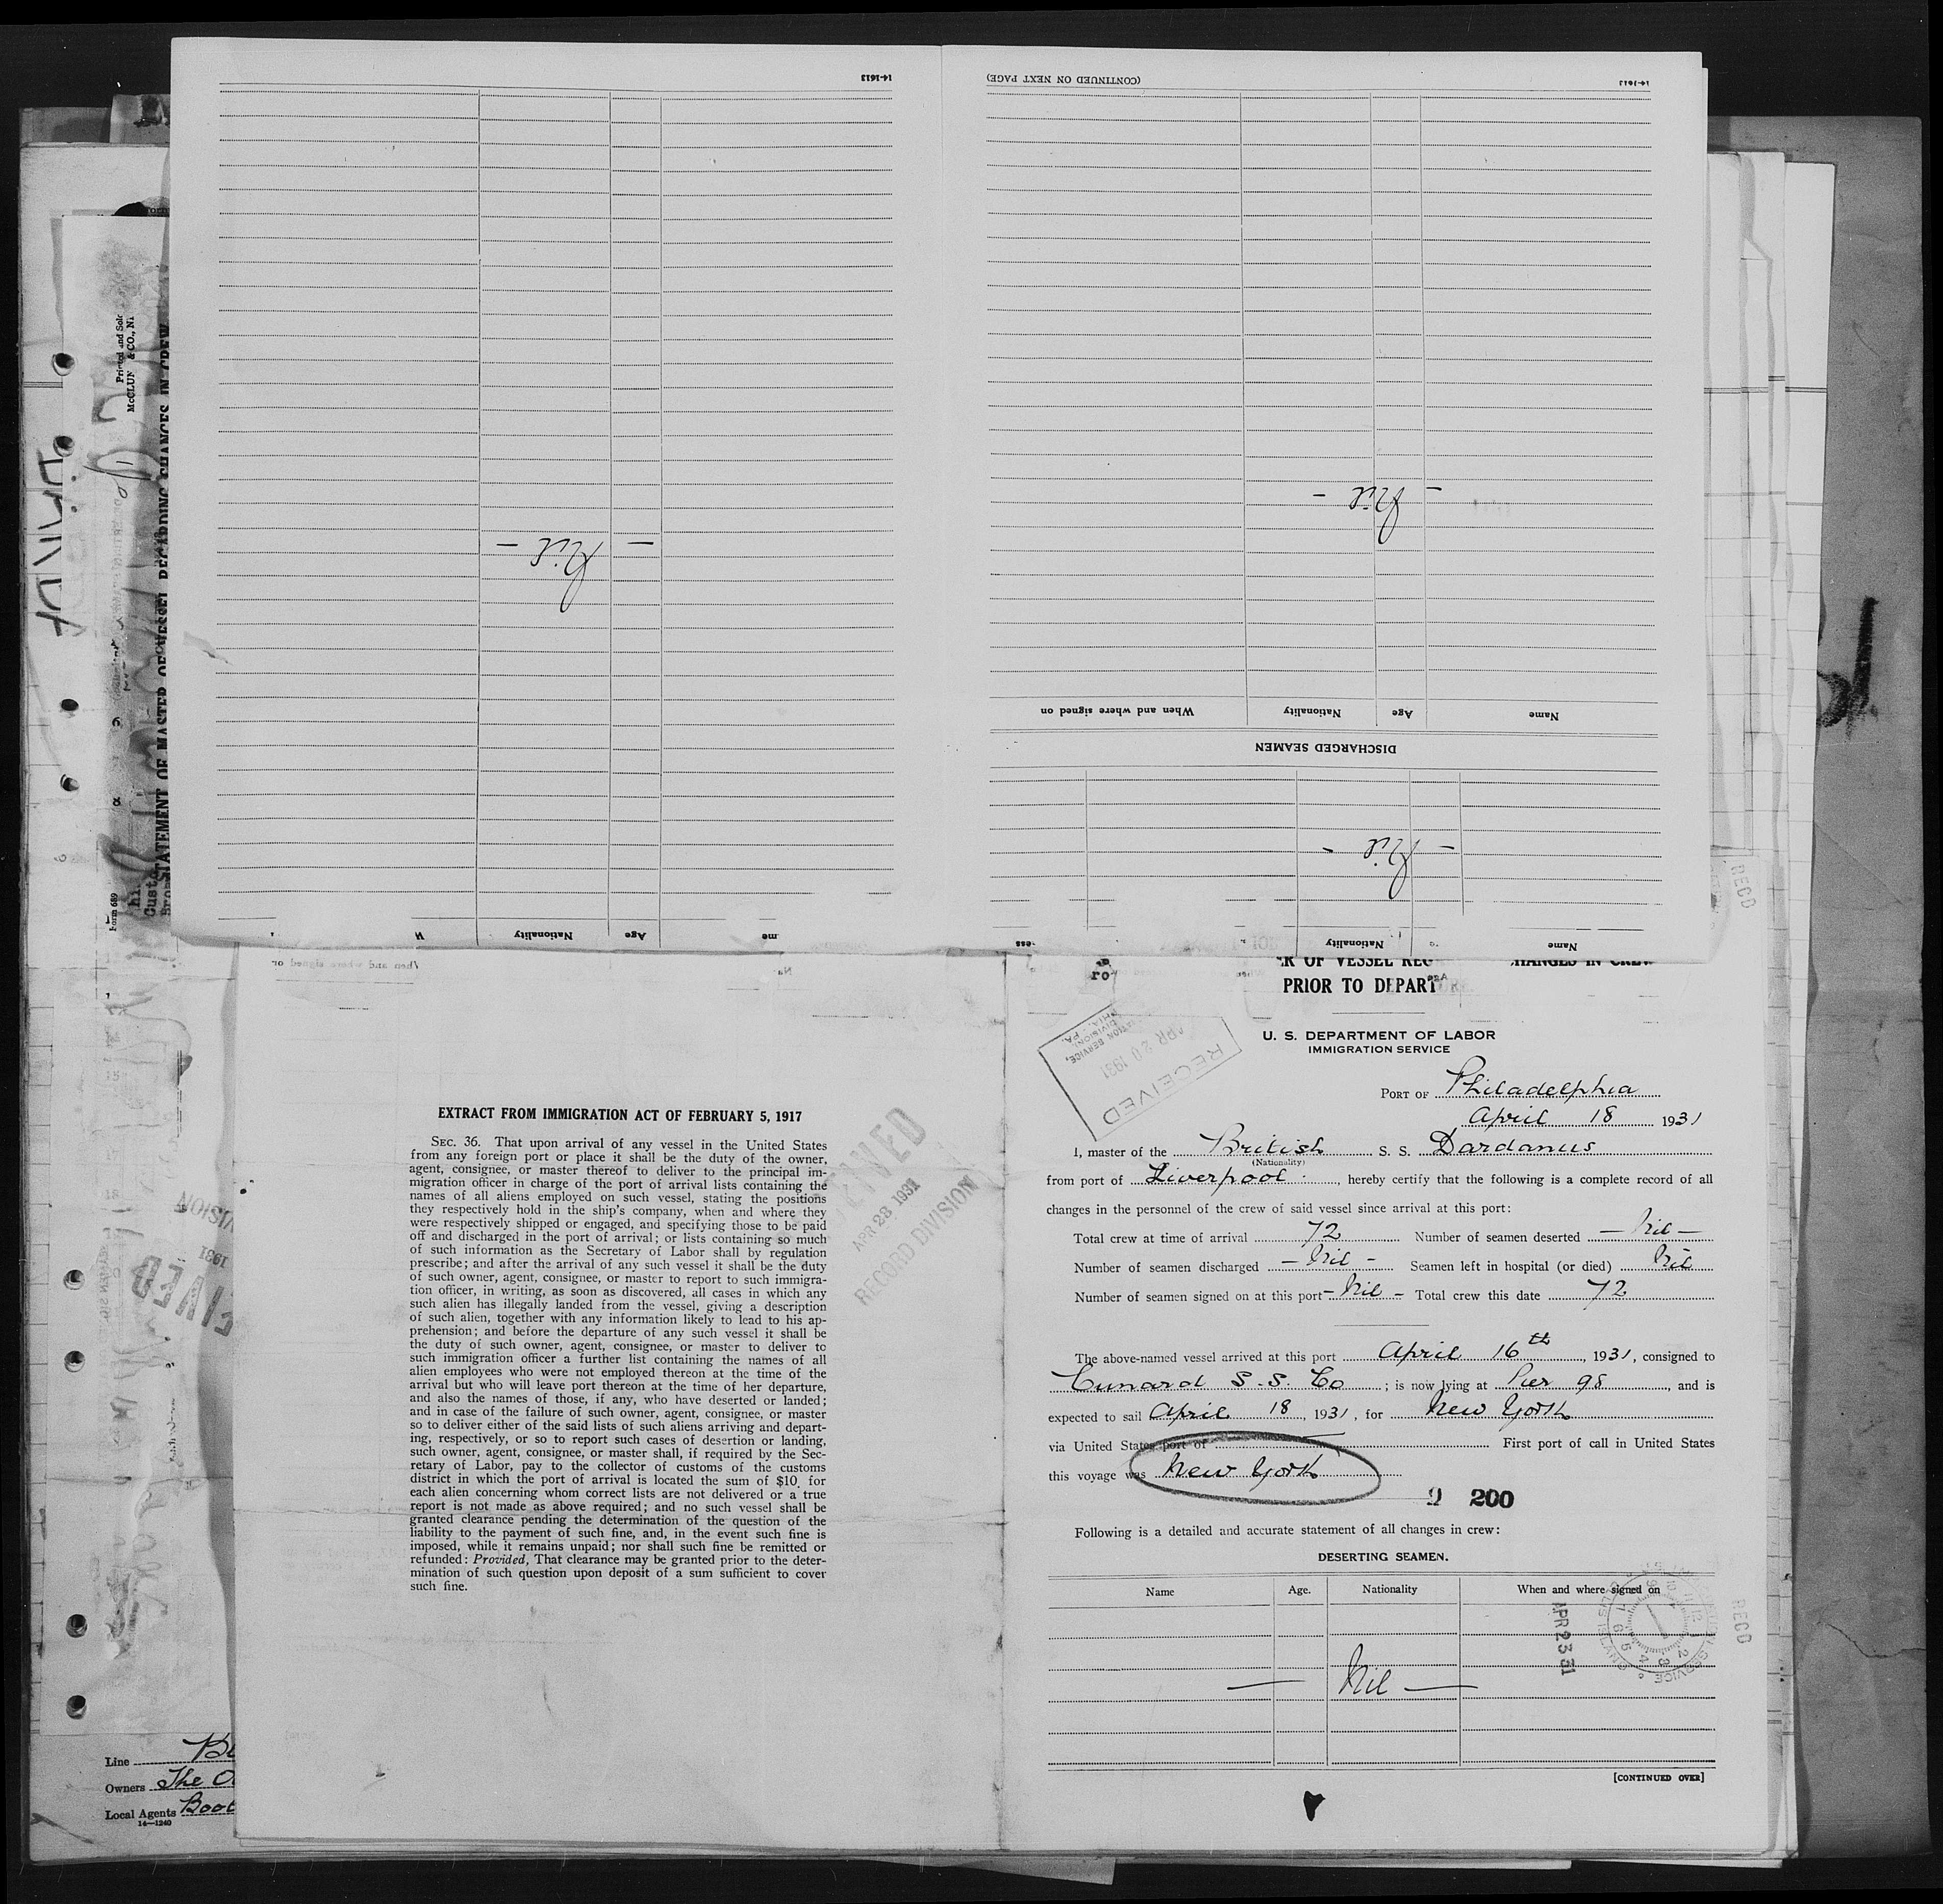 14-1613
(CONTINUED ON NEXT PAGE)
14-1613
- Nil -
- Nil -
Name
Age
Nationality
When and where signed on
DISCHARGED SEAMEN
- Nil -
Age
Nationality
Name
Nationality
PRIOR TO DEPART
U. S. DEPARTMENT OF LABOR
IMMIGRATION SERVICE
PORT OF Philadelphia
April 18 1931
I, master of the British S. S. Dardanus
(Nationality)
from port of Liverpool, hereby certify that the following is a complete record of all
changes in the personnel of the crew of said vessel since arrival at this port:
Total crew at time of arrival 72 Number of seamen deserted - Nil -
Number of seamen discharged - Nil - Seamen left in hospital (or died) Nil
Number of seamen signed on at this port - Nil - Total crew this date 72
The above-named vessel arrived at this port April 16th, 1931, consigned to
Cunard S.S. Co; is now lying at Pier 98, and is
expected to sail April 18, 1931, for New York
via United States port of First port of call in United States
this voyage was New York
9 200
Following is a detailed and accurate statement of all changes in crew:
DESERTING SEAMEN.
Name Age. Nationality When and where signed on
— Nil —
[CONTINUED OVER]
RECEIVED
APR 20 1931
APR 23 31
RECD
RECD
EXTRACT FROM IMMIGRATION ACT OF FEBRUARY 5, 1917
SEC. 36. That upon arrival of any vessel in the United States
from any foreign port or place it shall be the duty of the owner,
agent, consignee, or master thereof to deliver to the principal im-
migration officer in charge of the port of arrival lists containing the
names of all aliens employed on such vessel, stating the positions
they respectively hold in the ship's company, when and where they
were respectively shipped or engaged, and specifying those to be paid
off and discharged in the port of arrival; or lists containing so much
of such information as the Secretary of Labor shall by regulation
prescribe; and after the arrival of any such vessel it shall be the duty
of such owner, agent, consignee, or master to report to such immigra-
tion officer, in writing, as soon as discovered, all cases in which any
such alien has illegally landed from the vessel, giving a description
of such alien, together with any information likely to lead to his ap-
prehension; and before the departure of any such vessel it shall be
the duty of such owner, agent, consignee, or master to deliver to
such immigration officer a further list containing the names of all
alien employees who were not employed thereon at the time of the
arrival but who will leave port thereon at the time of her departure,
and also the names of those, if any, who have deserted or landed;
and in case of the failure of such owner, agent, consignee, or master
so to deliver either of the said lists of such aliens arriving and depart-
ing, respectively, or so to report such cases of desertion or landing,
such owner, agent, consignee, or master shall, if required by the Sec-
retary of Labor, pay to the collector of customs of the customs
district in which the port of arrival is located the sum of $10 for
each alien concerning whom correct lists are not delivered or a true
report is not made as above required; and no such vessel shall be
granted clearance pending the determination of the question of the
liability to the payment of such fine, and, in the event such fine is
imposed, while it remains unpaid; nor shall such fine be remitted or
refunded: Provided, That clearance may be granted prior to the deter-
mination of such question upon deposit of a sum sufficient to cover
such fine.
APR 23 1931
RECORD DIVISION
STATEMENT OF MASTER OF VESSEL REGARDING CHANGES IN CREW
Form 689
Line
Owners The
Local Agents
14-1240